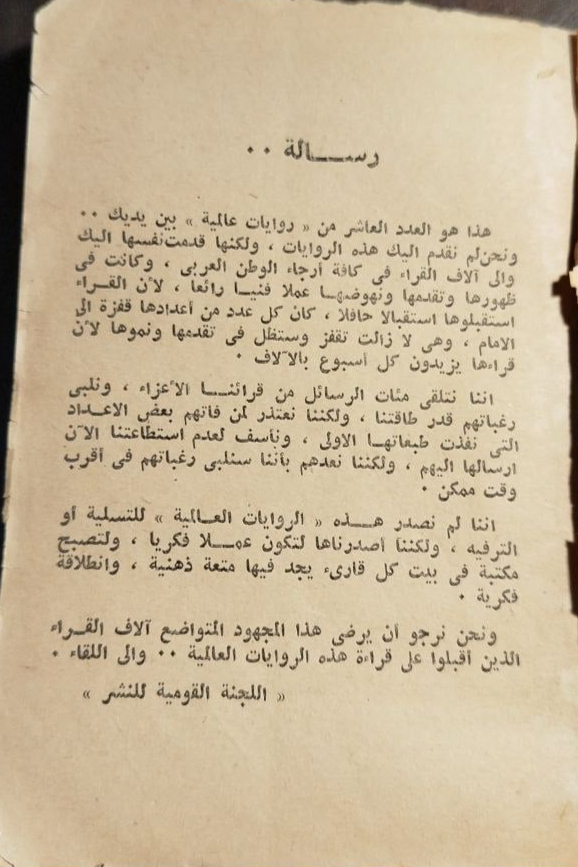 رســـالة ٠٠
هذا هو العدد العاشر من « روايات عالمية » بين يديك ٠٠
ونحن لم نقدم اليك هذه الروايات ، ولكنها قدمت نفسها اليك
والى آلاف القراء فى كافة أرجاء الوطن العربى ، وكانت فى
ظهورها وتقدمها ونهوضهـا عملا فنيـا رائعا ، لأن القـراء
استقبلوها استقبالا حافلا ، كان كل عدد من أعدادها قفزة الى
الامام ، وهى لا زالت تقفز وستظل فى تقدمها ونموها لأن
قراءها يزيدون كل أسبوع بالآلاف ٠
اننا نتلقى مئات الرسائل من قرائنـا الأعزاء ، ونلبى
رغباتهم قدر طاقتنا ، ولكننا نعتذر لمن فاتهم بعض الاعـداد
التى نفذت طبعاتهـا الاولى ، ونأسف لعدم استطاعتنا الآن
ارسالها اليهم ، ولكننا نعدهم بأننا سنلبى رغباتهم فى أقرب
وقت ممكن ٠
اننا لم نصدر هـذه « الروايات العـالمية » للتسلية أو
الترفيه ، ولكننا أصدرناها لتكون عمـلا فكريا ، ولتصبح
مكتبة فى بيت كل قارىء يجد فيها متعة ذهنية ، وانطلاقة
فكرية ٠
ونحن نرجو أن يرضى هذا المجهود المتواضع آلاف القـراء
الذين أقبلوا على قراءة هذه الروايات العالمية ٠٠ والى اللقاء ٠
« اللجنة القومية للنشر »